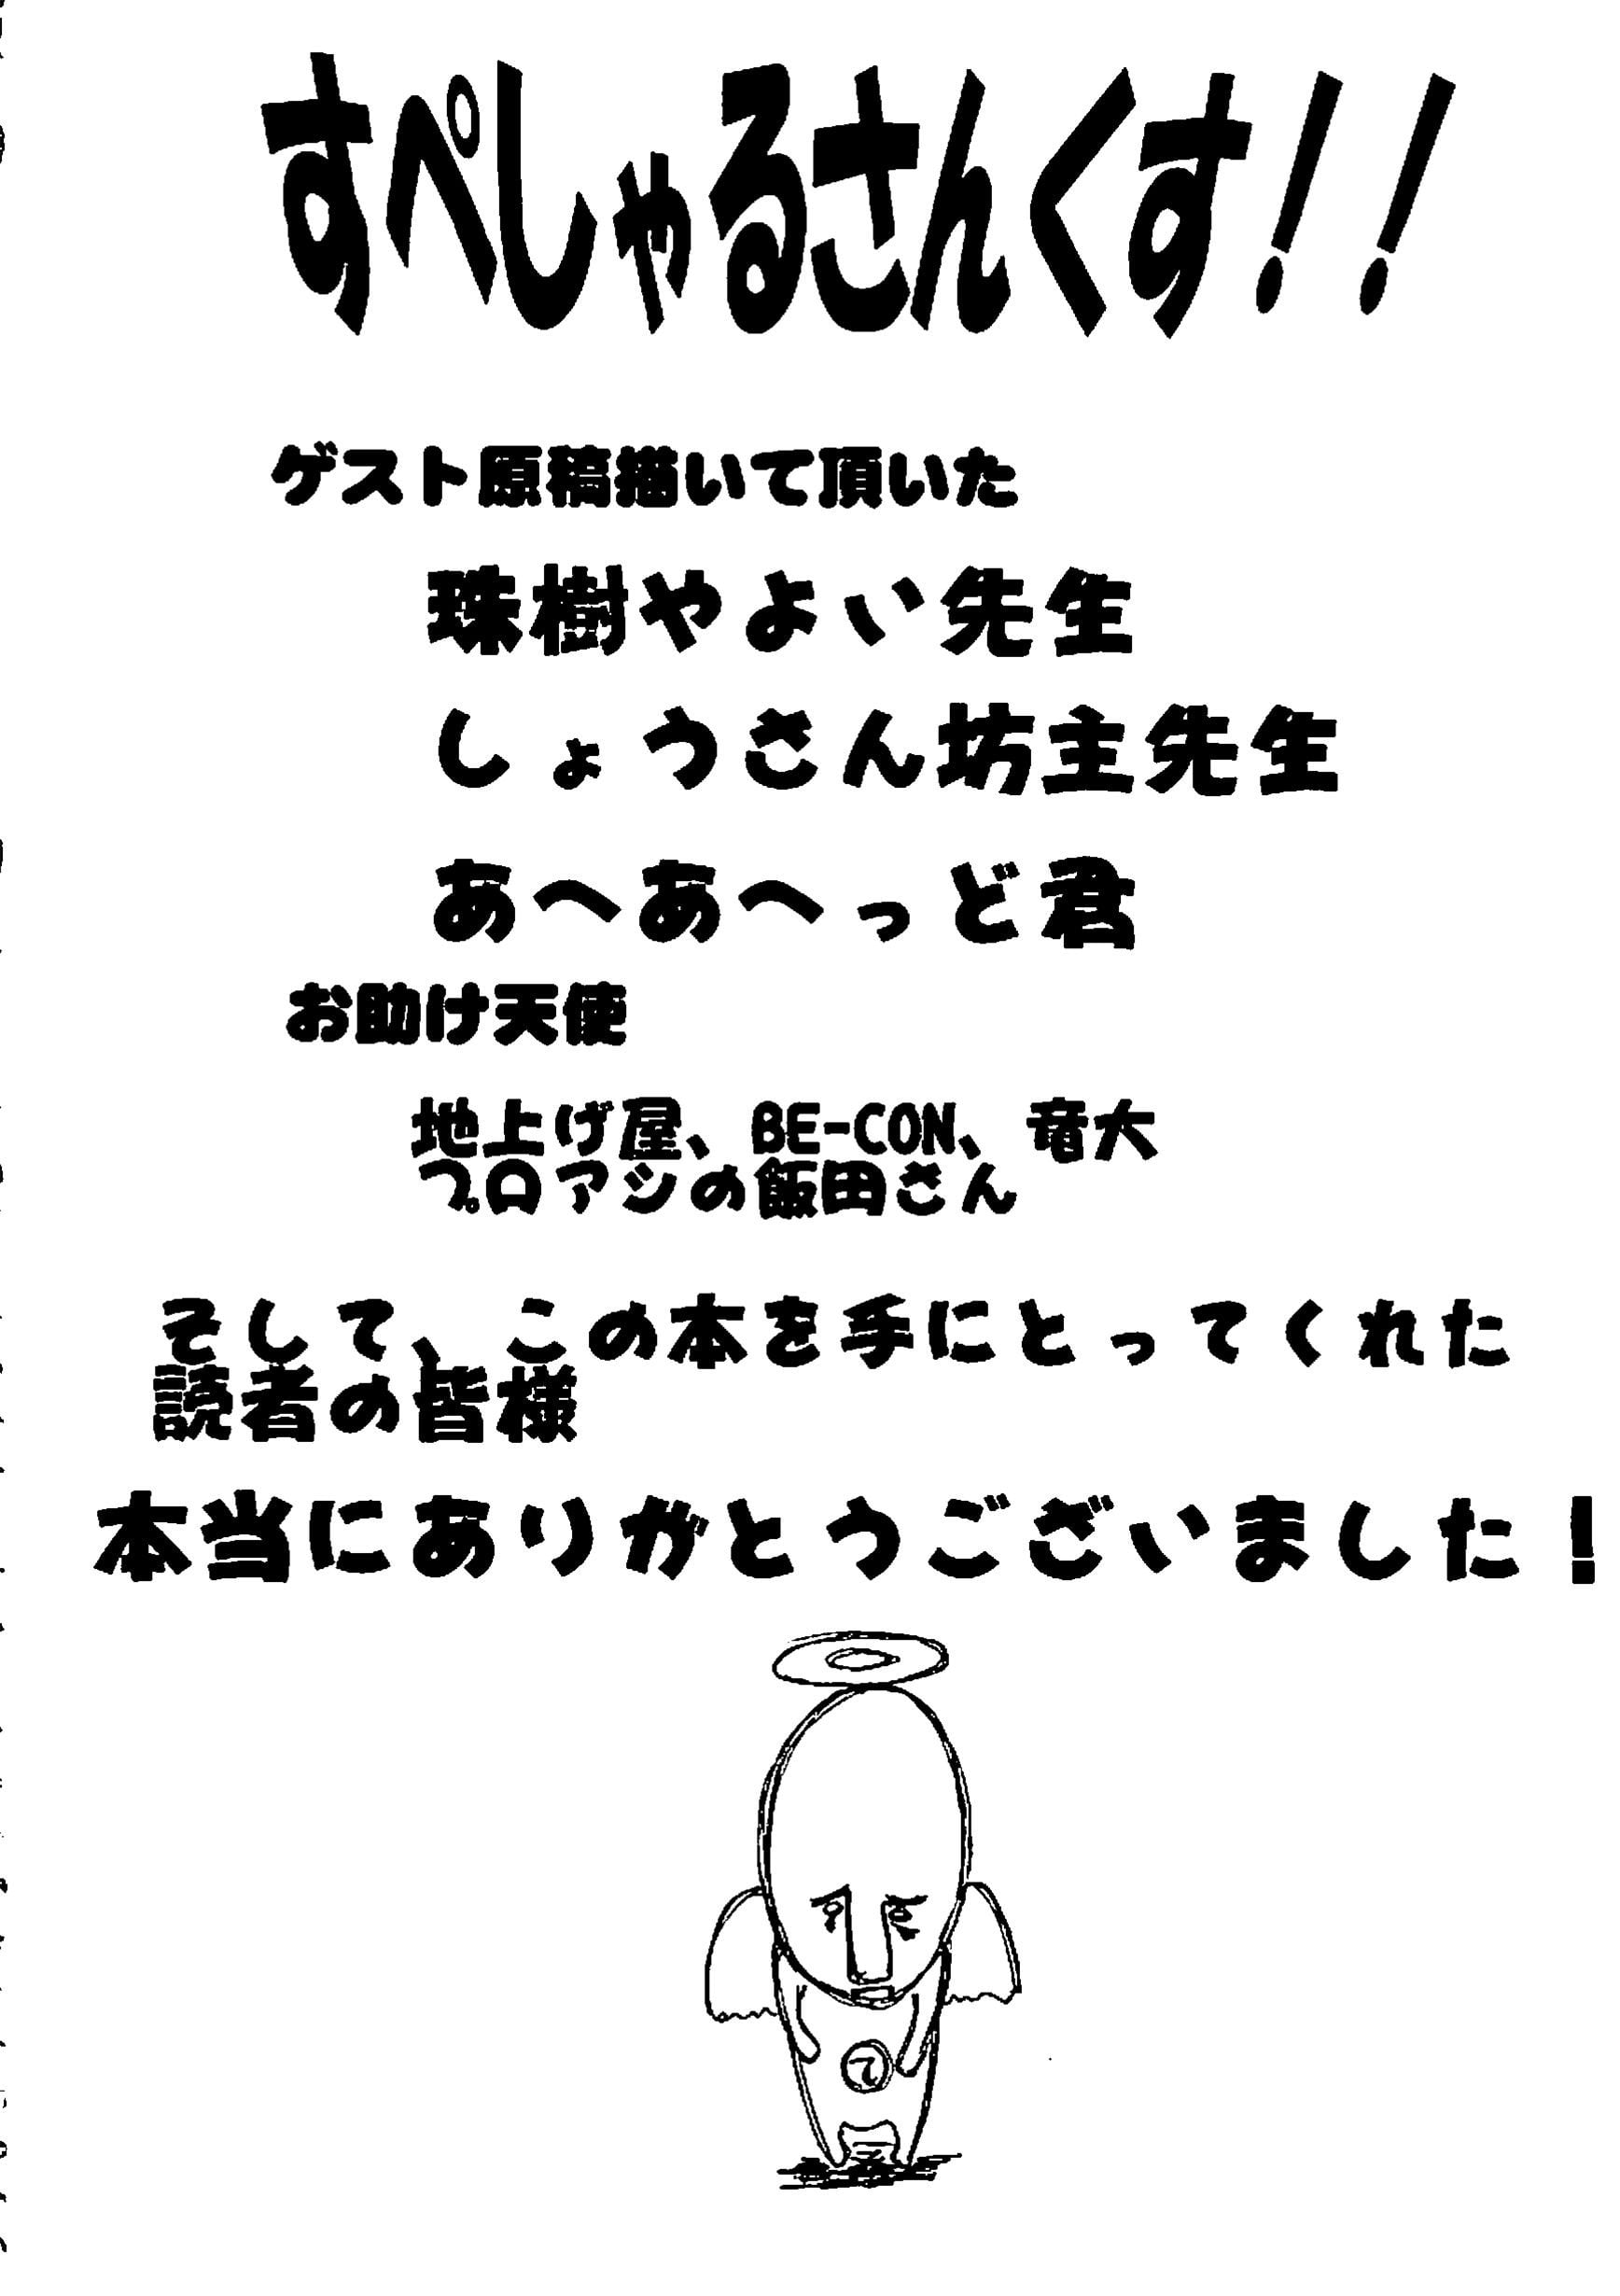 すぺしゃるさんくす！！
ゲスト原稿描いて頂いた
珠樹やよい先生
しょうさん坊主先生
あへあへっど君
お助け天使
地上げ屋、BE-CON、竜大
プロアシの飯田さん
そして、この本を手にとってくれた
読者の皆様
本当にありがとうございました！
て